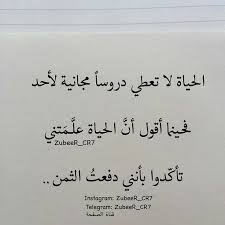 الحياة لا تعطي دروساً مجانية لأحد
فحينما أقول أنَّ الحياة علَّمَتني
ZubeeR_CR7
تأكّدوا بأنني دفعتُ الثمن ..
Instagram: ZubeeR_CR7
Telegram: ZubeeR_CR7
قناة الصفحة